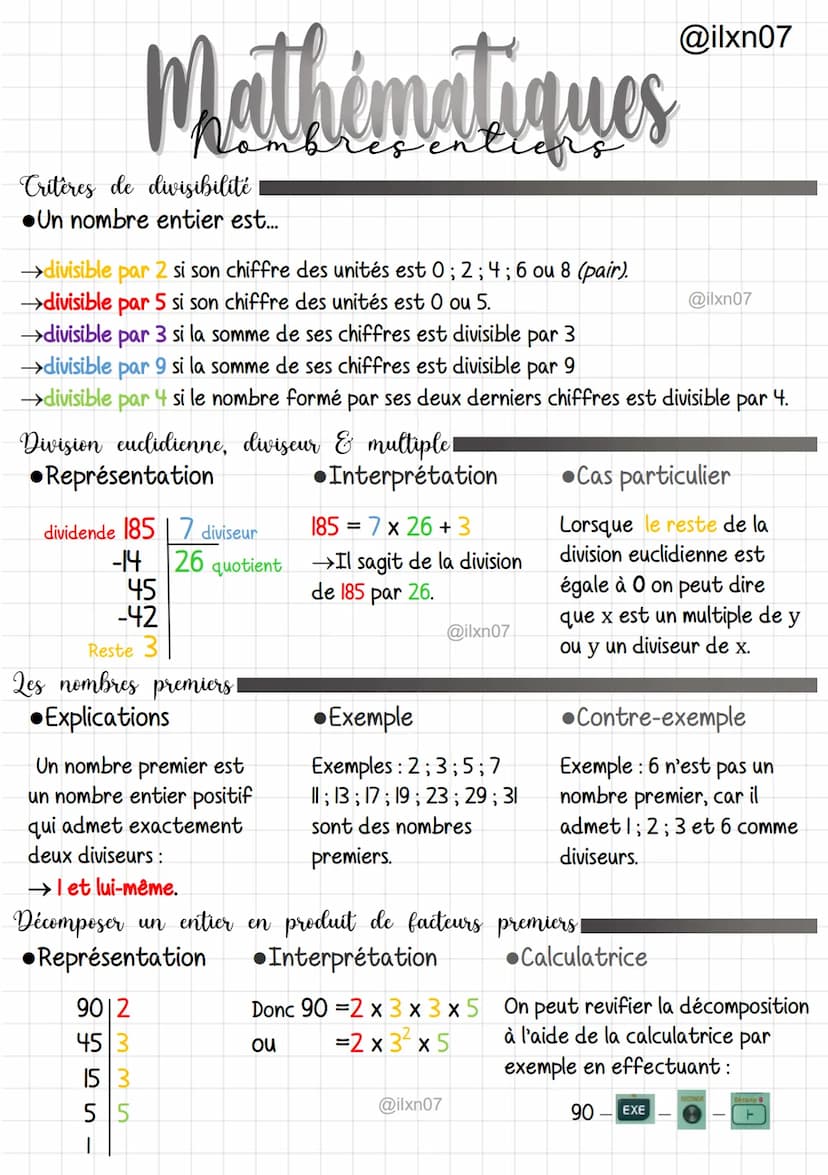 @ilxn07
Mathématiques
Nombres entiers
Critères de divisibilité
●Un nombre entier est...
→divisible par 2 si son chiffre des unités est 0 ; 2 ; 4 ; 6 ou 8 (pair).
→divisible par 5 si son chiffre des unités est 0 ou 5.
@ilxn07
→divisible par 3 si la somme de ses chiffres est divisible par 3
→divisible par 9 si la somme de ses chiffres est divisible par 9
→divisible par 4 si le nombre formé par ses deux derniers chiffres est divisible par 4.
Division euclidienne, diviseur & multiple
●Représentation
dividende 185 | 7 diviseur
-14 | 26 quotient
45
-42
Reste 3
●Interprétation
185 = 7 x 26 + 3
→Il sagit de la division
de 185 par 26.
@ilxn07
●Cas particulier
Lorsque le reste de la
division euclidienne est
égale à 0 on peut dire
que x est un multiple de y
ou y un diviseur de x.
Les nombres premiers
●Explications
Un nombre premier est
un nombre entier positif
qui admet exactement
deux diviseurs :
→ 1 et lui-même.
●Exemple
Exemples : 2 ; 3 ; 5 ; 7
11 ; 13 ; 17 ; 19 ; 23 ; 29 ; 31
sont des nombres
premiers.
●Contre-exemple
Exemple : 6 n'est pas un
nombre premier, car il
admet 1 ; 2 ; 3 et 6 comme
diviseurs.
Décomposer un entier en produit de facteurs premiers
●Représentation
90 | 2
45 | 3
15 | 3
5 | 5
1 |
●Interprétation
Donc 90 =2 x 3 x 3 x 5
ou =2 x 3² x 5
@ilxn07
●Calculatrice
On peut revifier la décomposition
à l'aide de la calculatrice par
exemple en effectuant :
90 – EXE – –